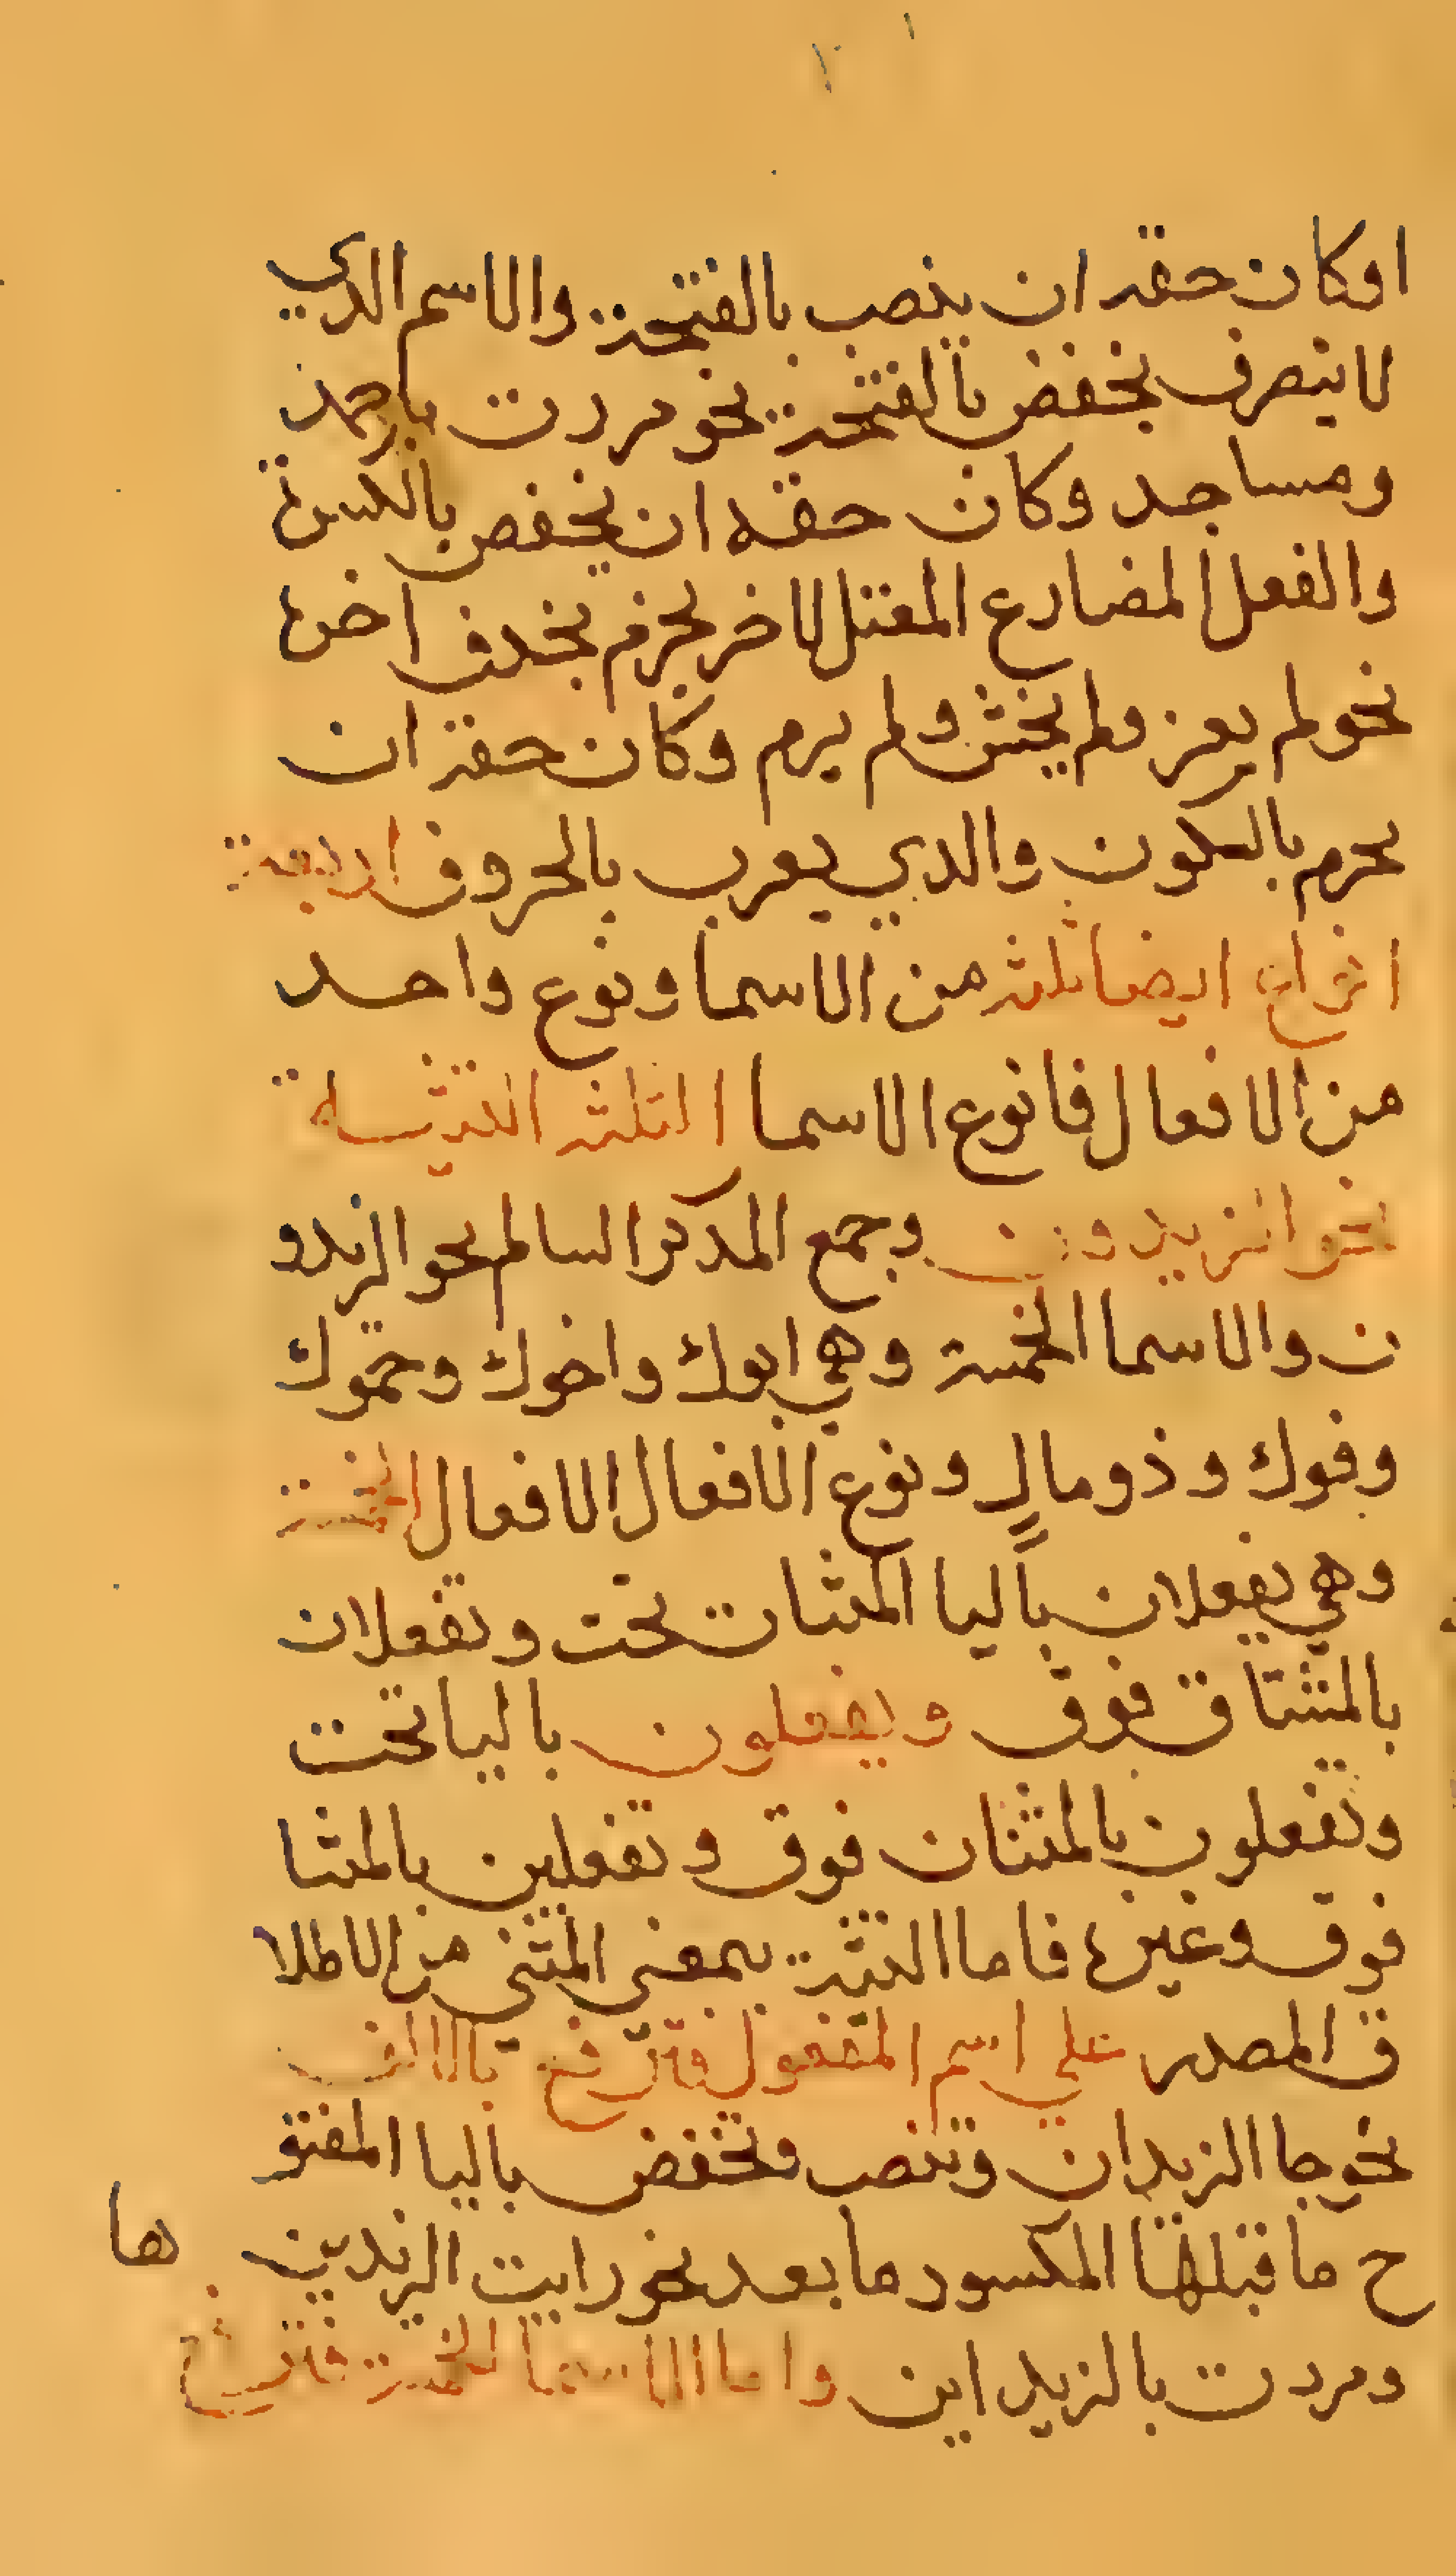 اوكان حقه ان ينصب بالفتحة والاسم الدي
لاينصرف يخفض بالفتحة نحو مررت باحمد
ومساجد وكان حقه ان يخفض بالكسرة
والفعل المضارع المعتل الاخر يجزم بحدف اخره
نحو لم يغز ولم يخش ولم يرم وكان حقه ان
يجزم بالسكون والدي يعرب بالحروف اربعة
انواع ايضا ثلثة من الاسما ونوع واحد
من الافعال فانوع الاسما الثلثة التثنية
نحو الزيدون وجمع المدكر السالم نحو الزيدو
ن والاسما الخمسة وهي ابوك واخوك وحموك
وفوك وذو مال ونوع الافعال الافعال الخمسة
وهي يفعلان باليا المثنات تحت وتفعلان
بالمثناة فوق ويفعلون باليا تحت
وتفعلون بالمثنان فوق وتفعلين بالمثنا
فوق وغيره فاما التثنية بمعني المثني من الاطلا
ق المصدر علي اسم المفعول فترفع بالالف
نحو جا الزيدان وتنصب وتخفض باليا المفتو
ح ما قبلها المكسور ما بعد نحو رايت الزيدين
ها
ومردت بالزيداين واما الاسما الخمسة فترفع